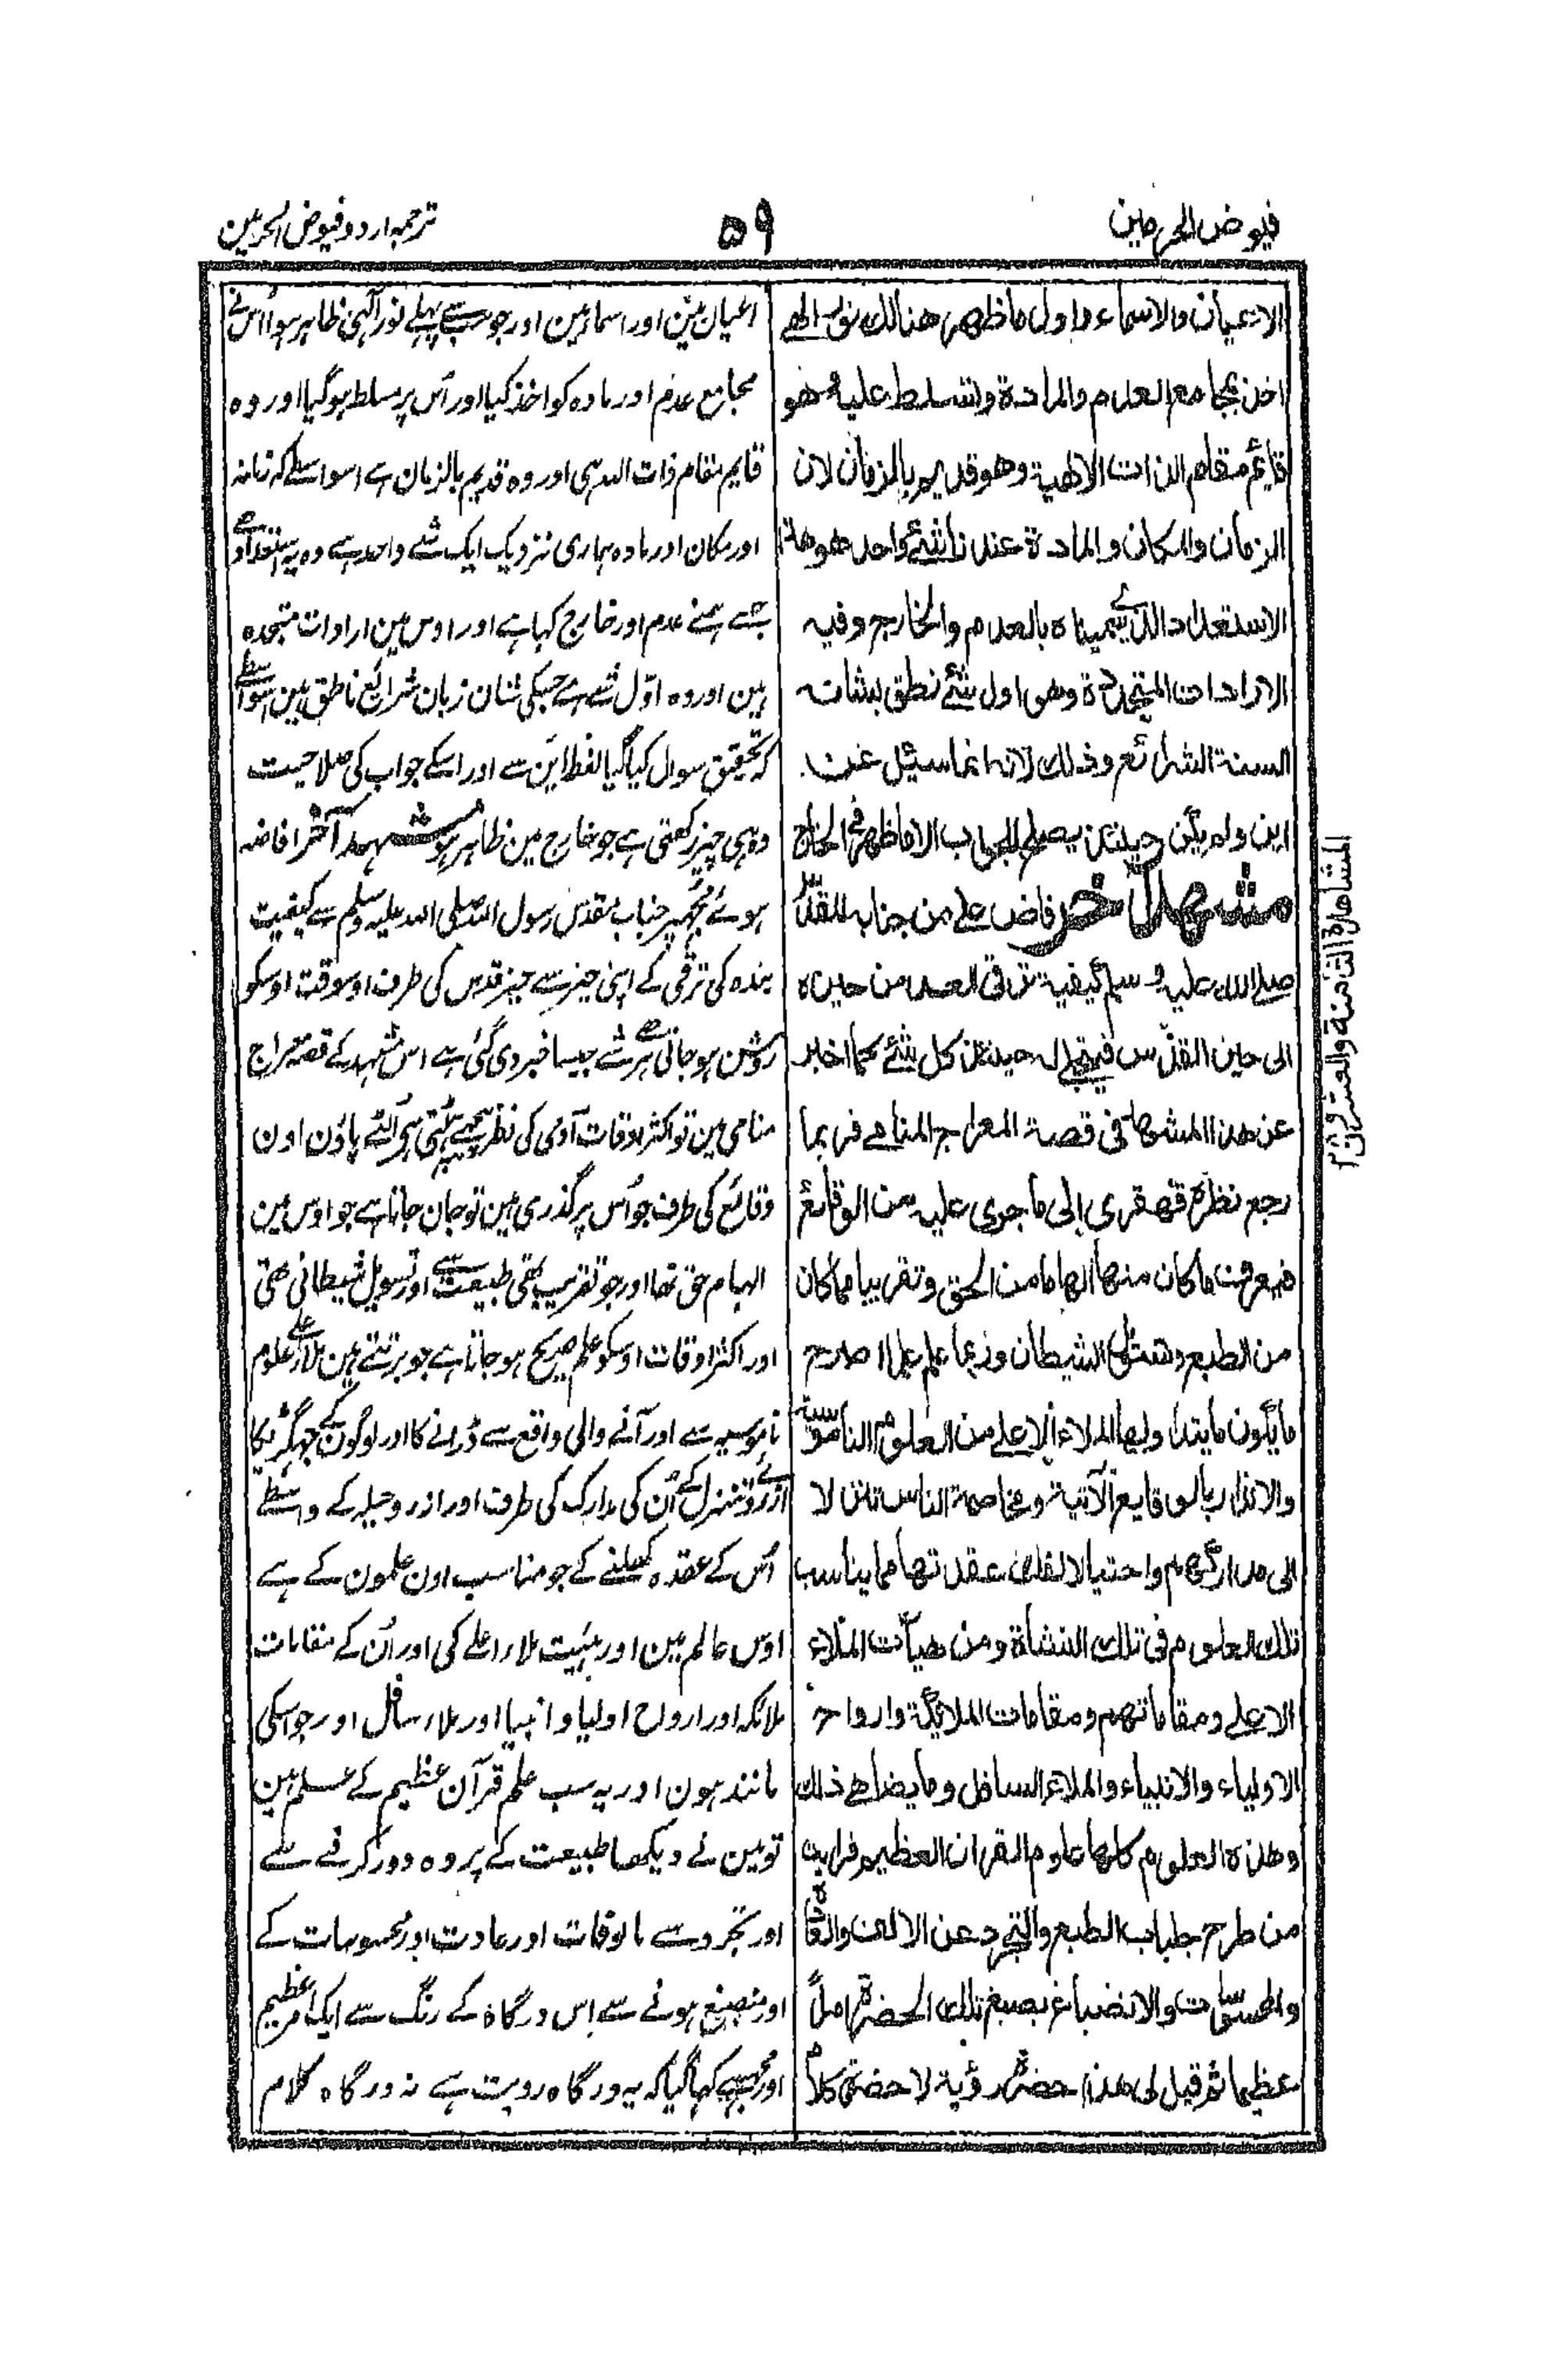 فیوض الحرمین
۵۹
ترجمہ اردو فیوض الحرمین
الاعیان والاسماء واول ما ظهر هنالك نور الهے
اخذ بمجامع العدم والمادة وتسلط علیه فهو
قائم مقام الذات الالهیة وهو قدیم بالزمان لان
الزمان والمكان والمادة عندنا شئ واحد هو هذا
الاستعداد الذی سمیناه بالعدم والخارج وفیه
الارادات المتجددة وهی اول شئ نطق بشانه
السنة الشرائع وذلك لانه انما سئیل عن
این ولم یكن حینئذ یصلح للجواب الا ما ظهر فی الخارج
مشهد آخر فاض علے من جنابه المقدس
صلے الله علیه وسلم كیفیة ترقی العبد من حیزه
الی حیز القدس فیتجلے له حینئذ كل شئ كما اخبر
عن هذا المشهد فی قصة المعراج المنامے فربما
رجع نظره قهقری الی ما جری علیه من الوقائع
فیعرف ما كان منها الهاما من الحق وتقریبا مما كان
من الطبع وتسویل الشیطان وربما علم علما صادح
ما یكون ما یتداولها الملاء الاعلے من العلوم الناموسیة
والانذار بالوقایع الآتیة ومخاصمة الناس تنزلا
الی مداركهم واحتیالا لفك عقدتها مما یناسب
تلك العلوم فی تلك النشأة ومن هیأت الملاء
الاعلے ومقاماتهم ومقامات الملائكة وارواح
الاولیاء والانبیاء والملاء السافل وما یضاهے ذلك
وهذه العلوم كلها علوم القران العظیم فرایت
من طرح جلباب الطبع والتجرد عن الالف والعادة
والمحسوسات والانصباغ بصبغ تلك الحضرة امراً
عظیما ثم قیل لی هذه حضرة رؤیة لا حضرة كلام
اعیان مین اور اسماء مین اور جو سب سے پہلے نور آلہی ظاہر ہوا اُس نے
مجامع عدم اور مادہ کو اخذ کیا اور اُس پر مسلط ہو گیا اور وہ
قایم مقام ذات الہہ ہی اور وہ قدیم بالزمان ہے اسواسطے کہ زمانہ
اور مکان اور مادہ ہماری نزدیک ایک شے واحد ہے وہ یہ استعداد ہے
جسے ہمنے عدم اور خارج کہا ہے اور اوس مین ارادات متجددہ
ہین اور وہ اوّل شے ہے جسکی شان زبان شرائع ناطق ہین اسواسطے
کہ تحقیق سوال کیا گیا لفظ این سے اور اسکے جواب کی صلاحیت
وہ ہی چیز رکھتی ہے جو خارج مین ظاہر ہو مشہد آخر افاضہ
ہوئے مجھپر جناب مقدس رسول اللہ صلی اللہ علیہ وسلم سے کیفیت
بندہ کی ترقی کے اپنی حیز سے حیز قدس کی طرف اوسوقت اوسکو
روشن ہو جاتی ہے ہر شے جیسا خبر دی گئی ہے اس مشہد کے قصہ معراج
منامی مین تو اکثر اوقات آدمی کی نظر پیچھے ہٹتی ہی اُلٹے پاؤن اون
وقائع کی طرف جو اُس پر گذری ہین تو جان جاتا ہے جو اوس مین
الہام حق تھا اور جو تقریب تھی طبیعت سے اور تسویل شیطانی تھی
اور اکثر اوقات اوسکو علم صحیح ہو جاتا ہے جو برتتے ہین ملاء اعلے علوم
ناموسیہ سے اور آنے والی واقع سے ڈرانے کا اور لوگون کے جھگڑیکا
ازروئے تنزل کے اُن کی مدارک کی طرف اور ازروحیلہ کے واسطے
اُس کے عقدہ کھلنے کے جو مناسب اون علمون کے ہے
اوس عالم مین اور ہئیت ملاء اعلے کی اور اُن کے مقامات
ملائکہ اور ارواح اولیا و انبیا اور ملاء سافل اور جو اسکی
مانند ہون اور یہ سب علم قرآن عظیم کے علم ہین
تو مین نے دیکھا طبیعت کے پردہ دور کرنے سے
اور تجرد سے مالوفات اور عادت اور محسوسات کے
اور منصبغ ہونے سے اِس درگاہ کے رنگ سے ایک امر عظیم
اور مجھسے کہا گیا کہ یہ درگاہ رویت ہے نہ درگاہ کلام
المشاهدة الثامنة والعشرون